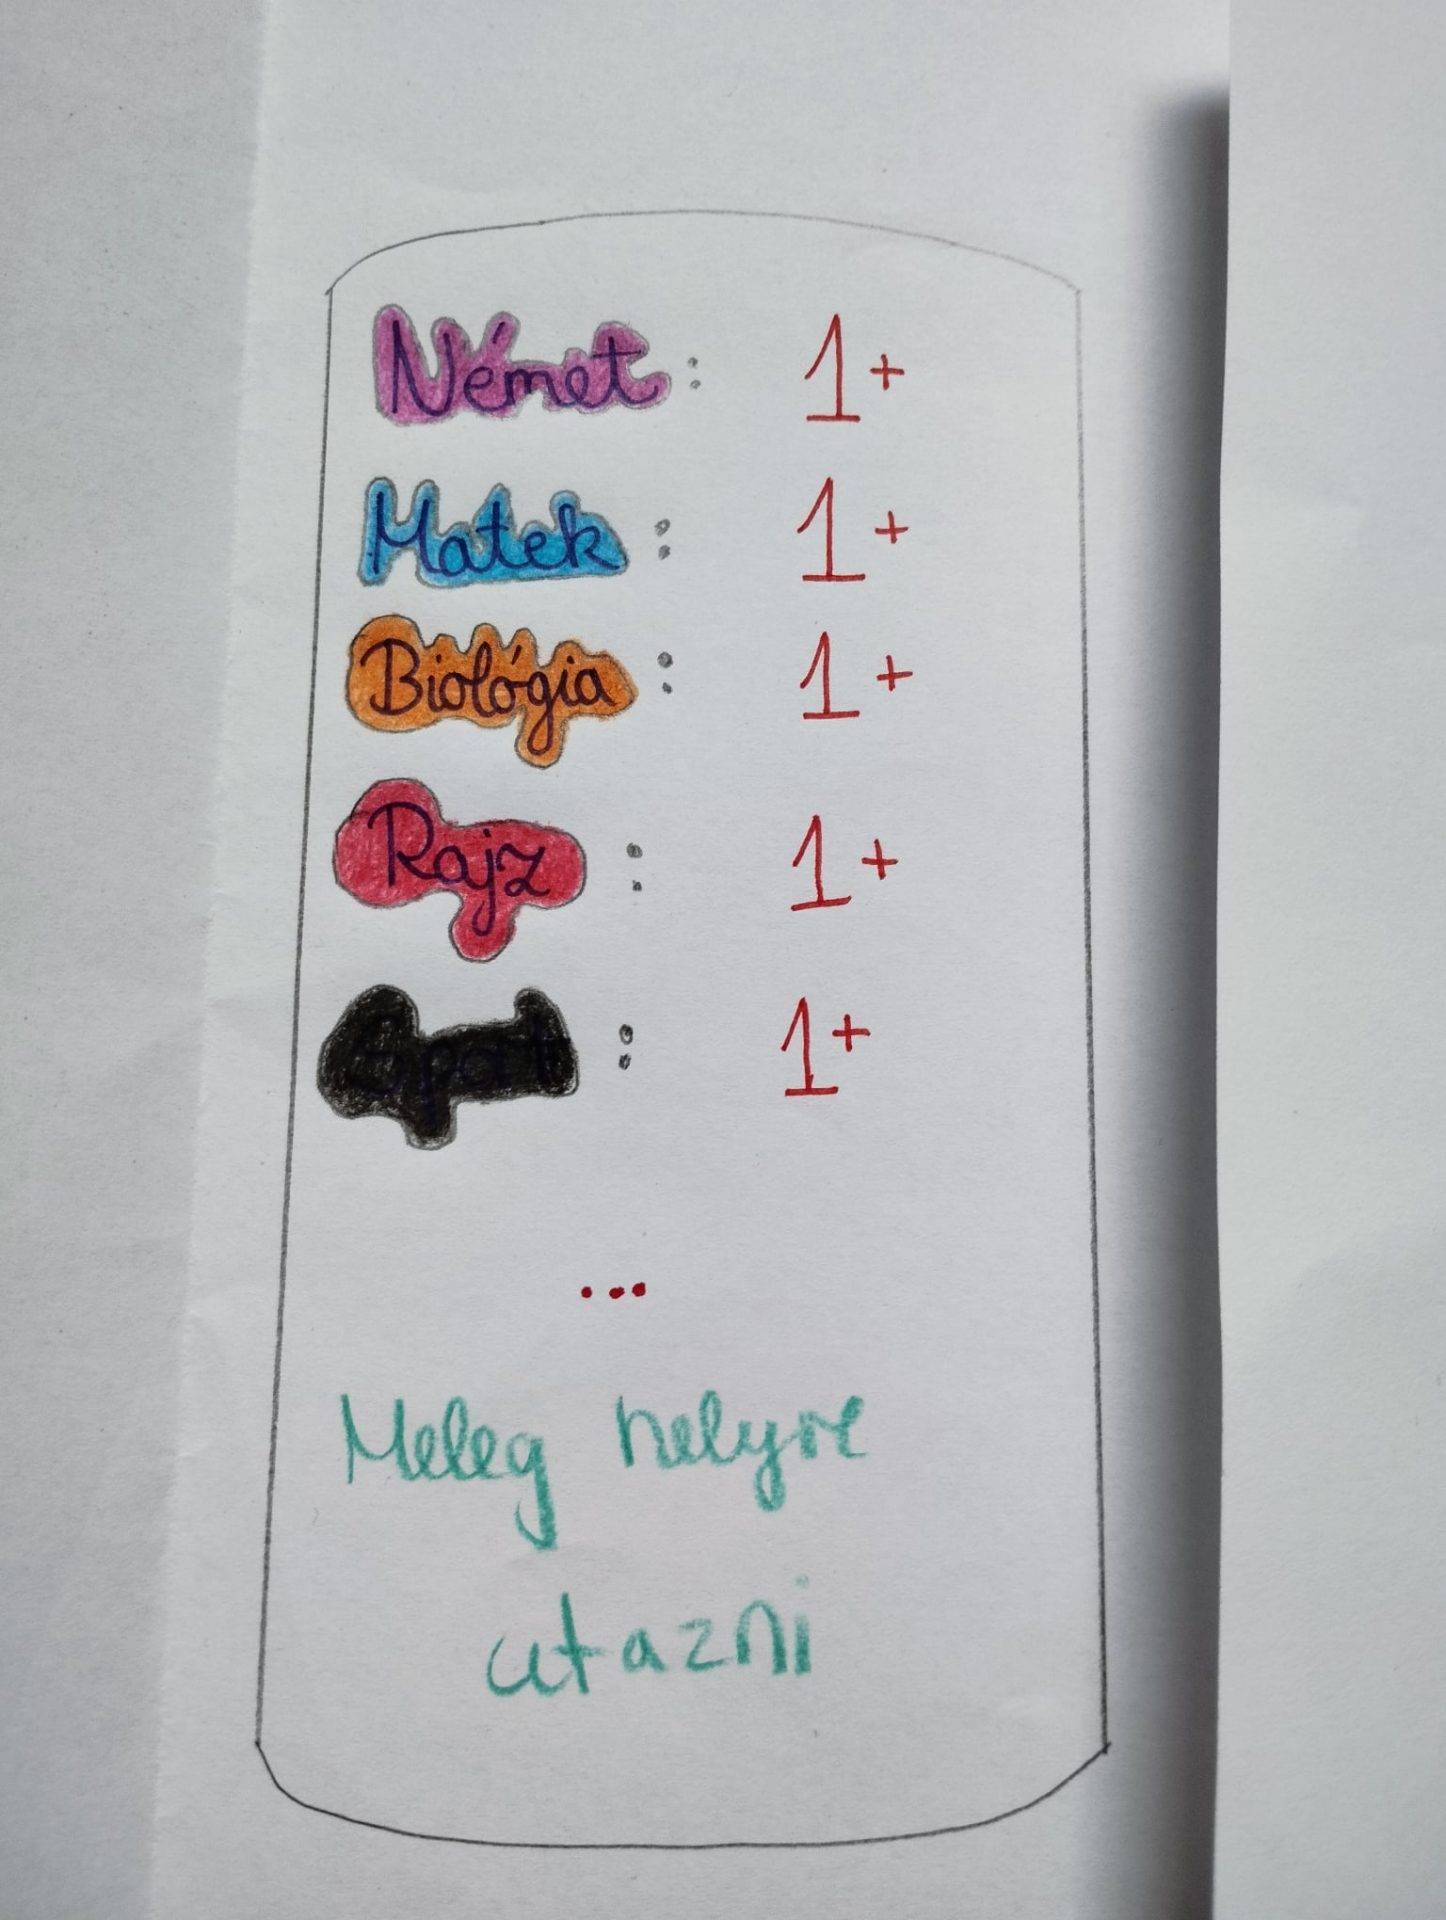 Német: 1+
Matek: 1+
Biológia: 1+
Rajz: 1+
: 1+
...
Meleg helyre
utazni